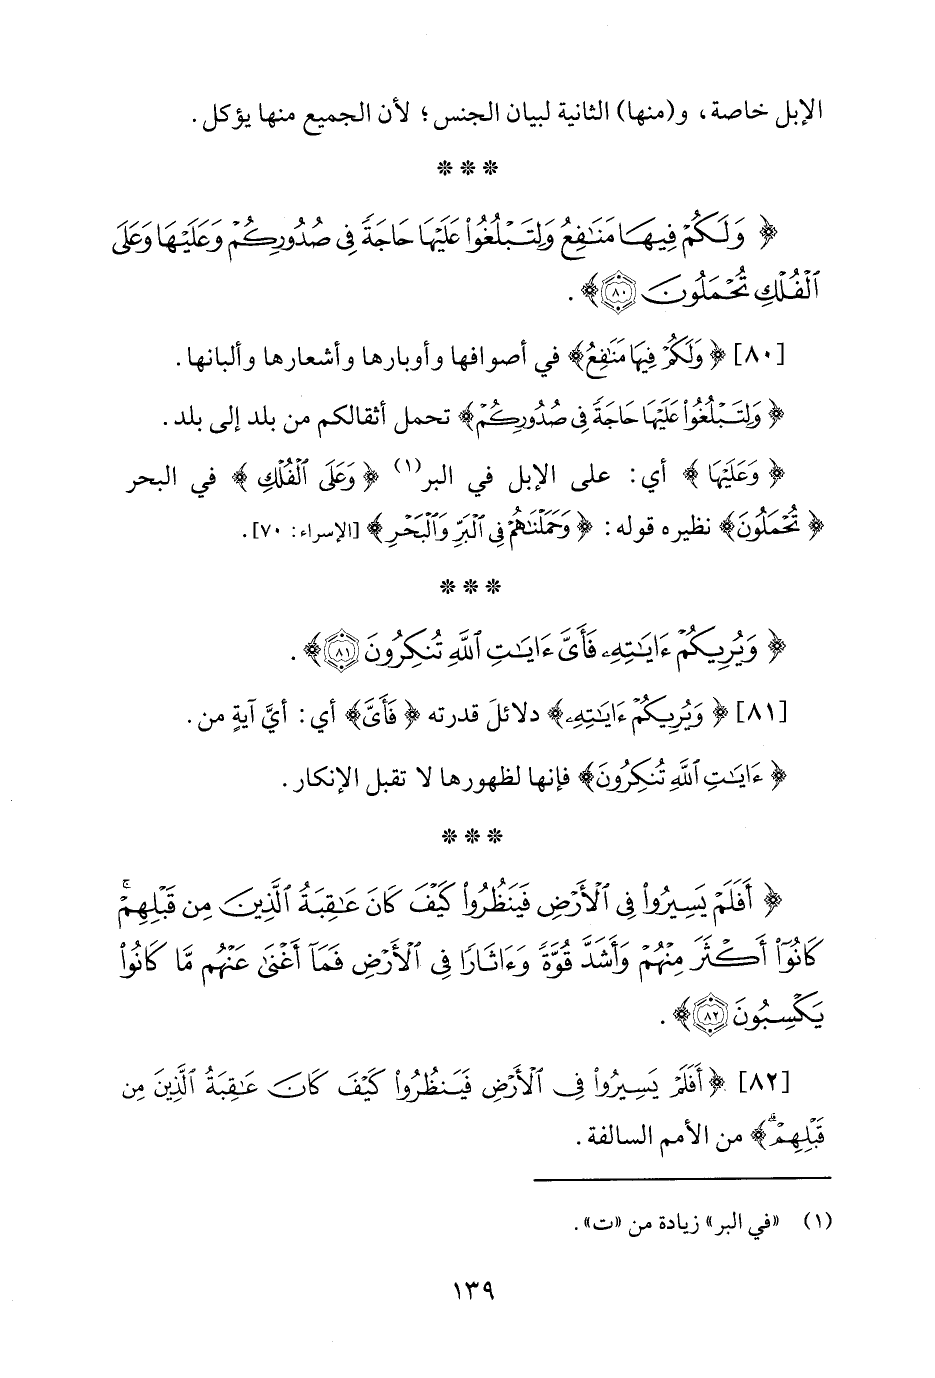 الإبل خاصة، و(منها) الثانية لبيان الجنس؛ لأن الجميع منها يؤكل.
* * *
﴿ وَلَكُمْ فِيهَا مَنَٰفِعُ وَلِتَبْلُغُوا۟ عَلَيْهَا حَاجَةً فِى صُدُورِكُمْ وَعَلَيْهَا وَعَلَى
ٱلْفُلْكِ تُحْمَلُونَ ۝٨٠﴾.
[٨٠] ﴿ وَلَكُمْ فِيهَا مَنَٰفِعُ﴾ في أصوافها وأوبارها وأشعارها وألبانها.
﴿ وَلِتَبْلُغُوا۟ عَلَيْهَا حَاجَةً فِى صُدُورِكُمْ﴾ تحمل أثقالكم من بلد إلى بلد.
﴿ وَعَلَيْهَا ﴾ أي: على الإبل في البر(١) ﴿ وَعَلَى ٱلْفُلْكِ ﴾ في البحر
﴿ تُحْمَلُونَ﴾ نظيره قوله: ﴿ وَحَمَلْنَٰهُمْ فِى ٱلْبَرِّ وَٱلْبَحْرِ ﴾ [الإسراء: ٧٠].
* * *
﴿ وَيُرِيكُمْ ءَايَٰتِهِۦ فَأَىَّ ءَايَٰتِ ٱللَّهِ تُنكِرُونَ ۝٨١﴾.
[٨١] ﴿ وَيُرِيكُمْ ءَايَٰتِهِۦ﴾ دلائلَ قدرته ﴿ فَأَىَّ﴾ أي: أيَّ آيةٍ من.
﴿ ءَايَٰتِ ٱللَّهِ تُنكِرُونَ﴾ فإنها لظهورها لا تقبل الإنكار.
* * *
﴿ أَفَلَمْ يَسِيرُوا۟ فِى ٱلْأَرْضِ فَيَنظُرُوا۟ كَيْفَ كَانَ عَٰقِبَةُ ٱلَّذِينَ مِن قَبْلِهِمْ ۚ
كَانُوٓا۟ أَكْثَرَ مِنْهُمْ وَأَشَدَّ قُوَّةً وَءَاثَارًا فِى ٱلْأَرْضِ فَمَآ أَغْنَىٰ عَنْهُم مَّا كَانُوا۟
يَكْسِبُونَ ۝٨٢﴾.
[٨٢] ﴿أَفَلَمْ يَسِيرُوا۟ فِى ٱلْأَرْضِ فَيَنظُرُوا۟ كَيْفَ كَانَ عَٰقِبَةُ ٱلَّذِينَ مِن
قَبْلِهِمْ ۗ﴾ من الأمم السالفة.
(١) «في البر» زيادة من «ت».
١٣٩